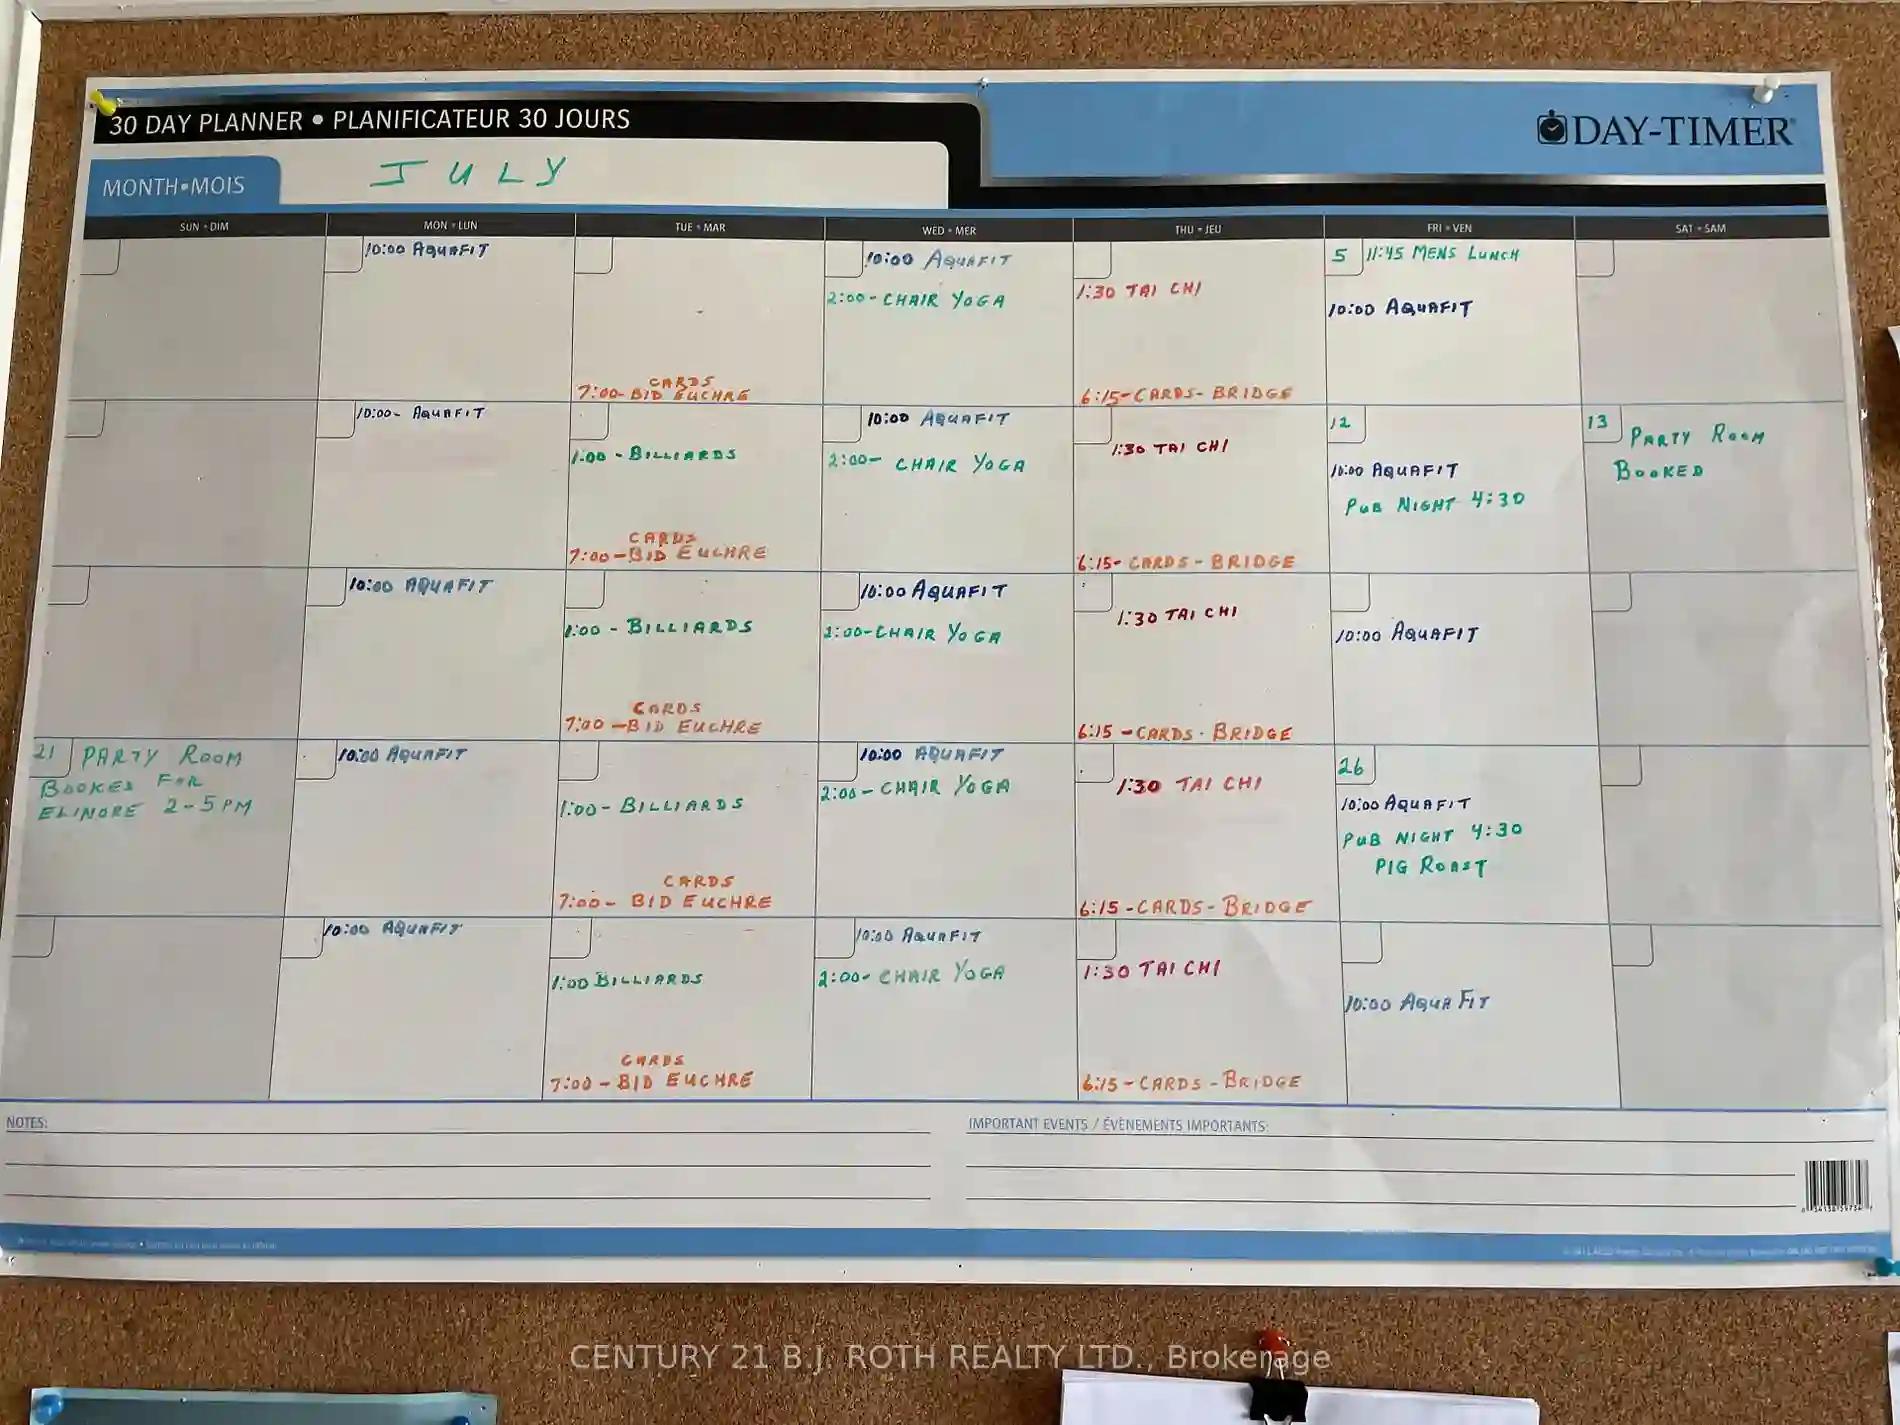 30 DAY PLANNER • PLANIFICATEUR 30 JOURS
DAY-TIMER
MONTH•MOIS
JULY
SUN • DIM
MON • LUN
TUE • MAR
WED • MER
THU • JEU
FRI • VEN
SAT • SAM
10:00 AQUAFIT
CARDS
7:00- BID EUCHRE
10:00 AQUAFIT
2:00- CHAIR YOGA
1:30 TAI CHI
6:15-CARDS- BRIDGE
5 11:45 MENS LUNCH
10:00 AQUAFIT
10:00- AQUAFIT
1:00 - BILLIARDS
CARDS
7:00-BID EUCHRE
10:00 AQUAFIT
2:00- CHAIR YOGA
1:30 TAI CHI
6:15- CARDS - BRIDGE
12
10:00 AQUAFIT
PUB NIGHT 4:30
13 PARTY ROOM
BOOKED
10:00 AQUAFIT
1:00 - BILLIARDS
CARDS
7:00 -BID EUCHRE
10:00 AQUAFIT
2:00-CHAIR YOGA
1:30 TAI CHI
6:15 -CARDS - BRIDGE
10:00 AQUAFIT
21 PARTY ROOM
BOOKED FOR
ELINORE 2-5PM
10:00 AQUAFIT
1:00- BILLIARDS
CARDS
7:00- BID EUCHRE
10:00 AQUAFIT
2:00- CHAIR YOGA
1:30 TAI CHI
6:15 -CARDS- BRIDGE
26
10:00 AQUAFIT
PUB NIGHT 4:30
PIG ROAST
10:00 AQUAFIT
1:00 BILLIARDS
CARDS
7:00 - BID EUCHRE
10:00 AQUAFIT
2:00- CHAIR YOGA
1:30 TAI CHI
6:15-CARDS-BRIDGE
10:00 AQUA FIT
NOTES:
IMPORTANT EVENTS / ÉVÈNEMENTS IMPORTANTS:
CENTURY 21 B.J. ROTH REALTY LTD., Brokerage